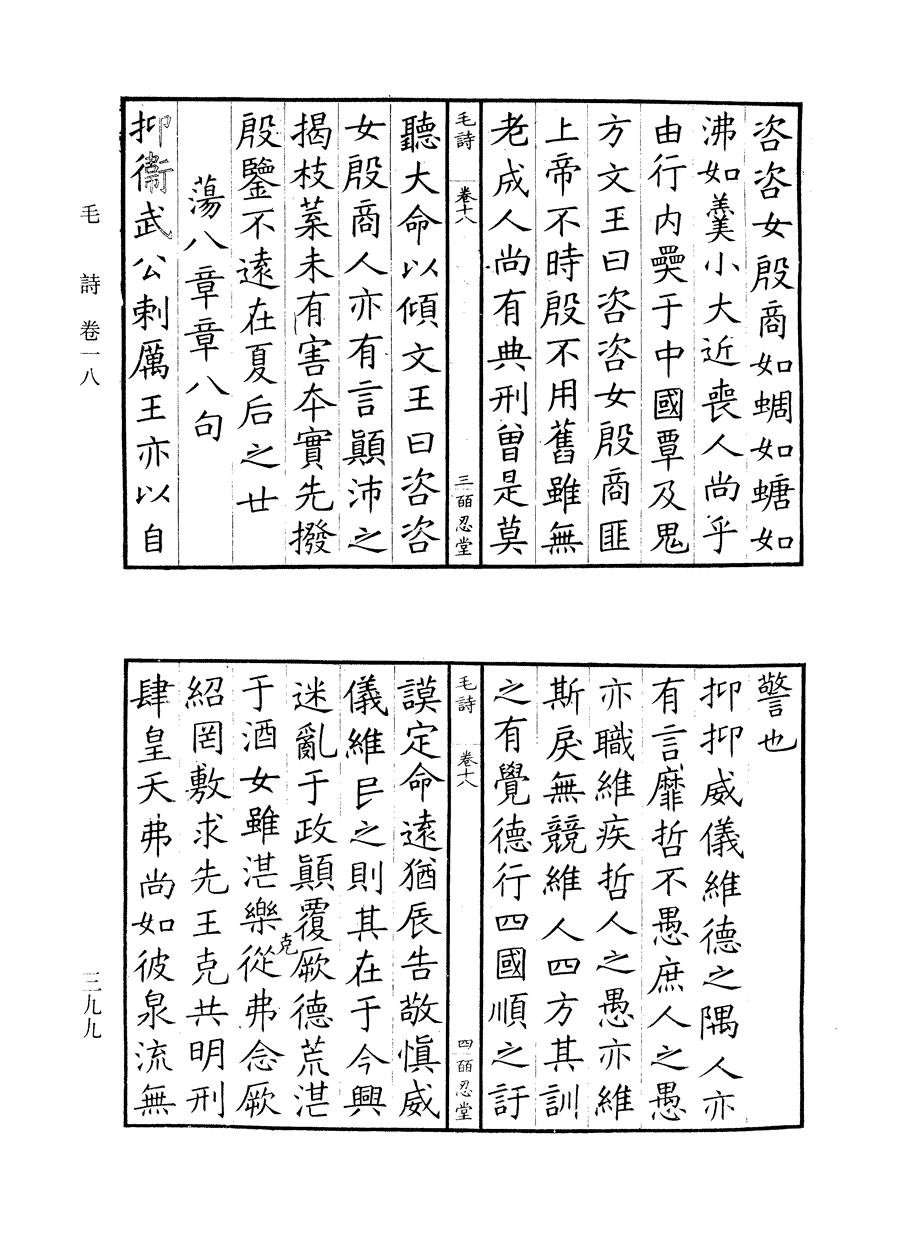 咨咨女殷商如蜩如螗如
沸如羹小大近喪人尚乎
由行内奰于中國覃及鬼
方文王曰咨咨女殷商匪
上帝不時殷不用舊雖無
老成人尚有典刑曾是莫
毛詩 卷十八 三 皕忍堂
聽大命以傾文王曰咨咨
女殷商人亦有言顛沛之
揭枝葉未有害本實先撥
殷鑒不遠在夏后之廿
蕩八章章八句
抑衛武公刺厲王亦以自
警也
抑抑威儀維德之隅人亦
有言靡哲不愚庶人之愚
亦職維疾哲人之愚亦維
斯戾無競維人四方其訓
之有覺德行四國順之訏
毛詩 卷十八 四 皕忍堂
謨定命遠猶辰告敬慎威
儀維民之則其在于今興
迷亂于政顛覆厥德荒湛
于酒女雖湛樂克從弗念厥
紹罔敷求先王克共明刑
肆皇天弗尚如彼泉流無
毛詩 卷一八
三九九